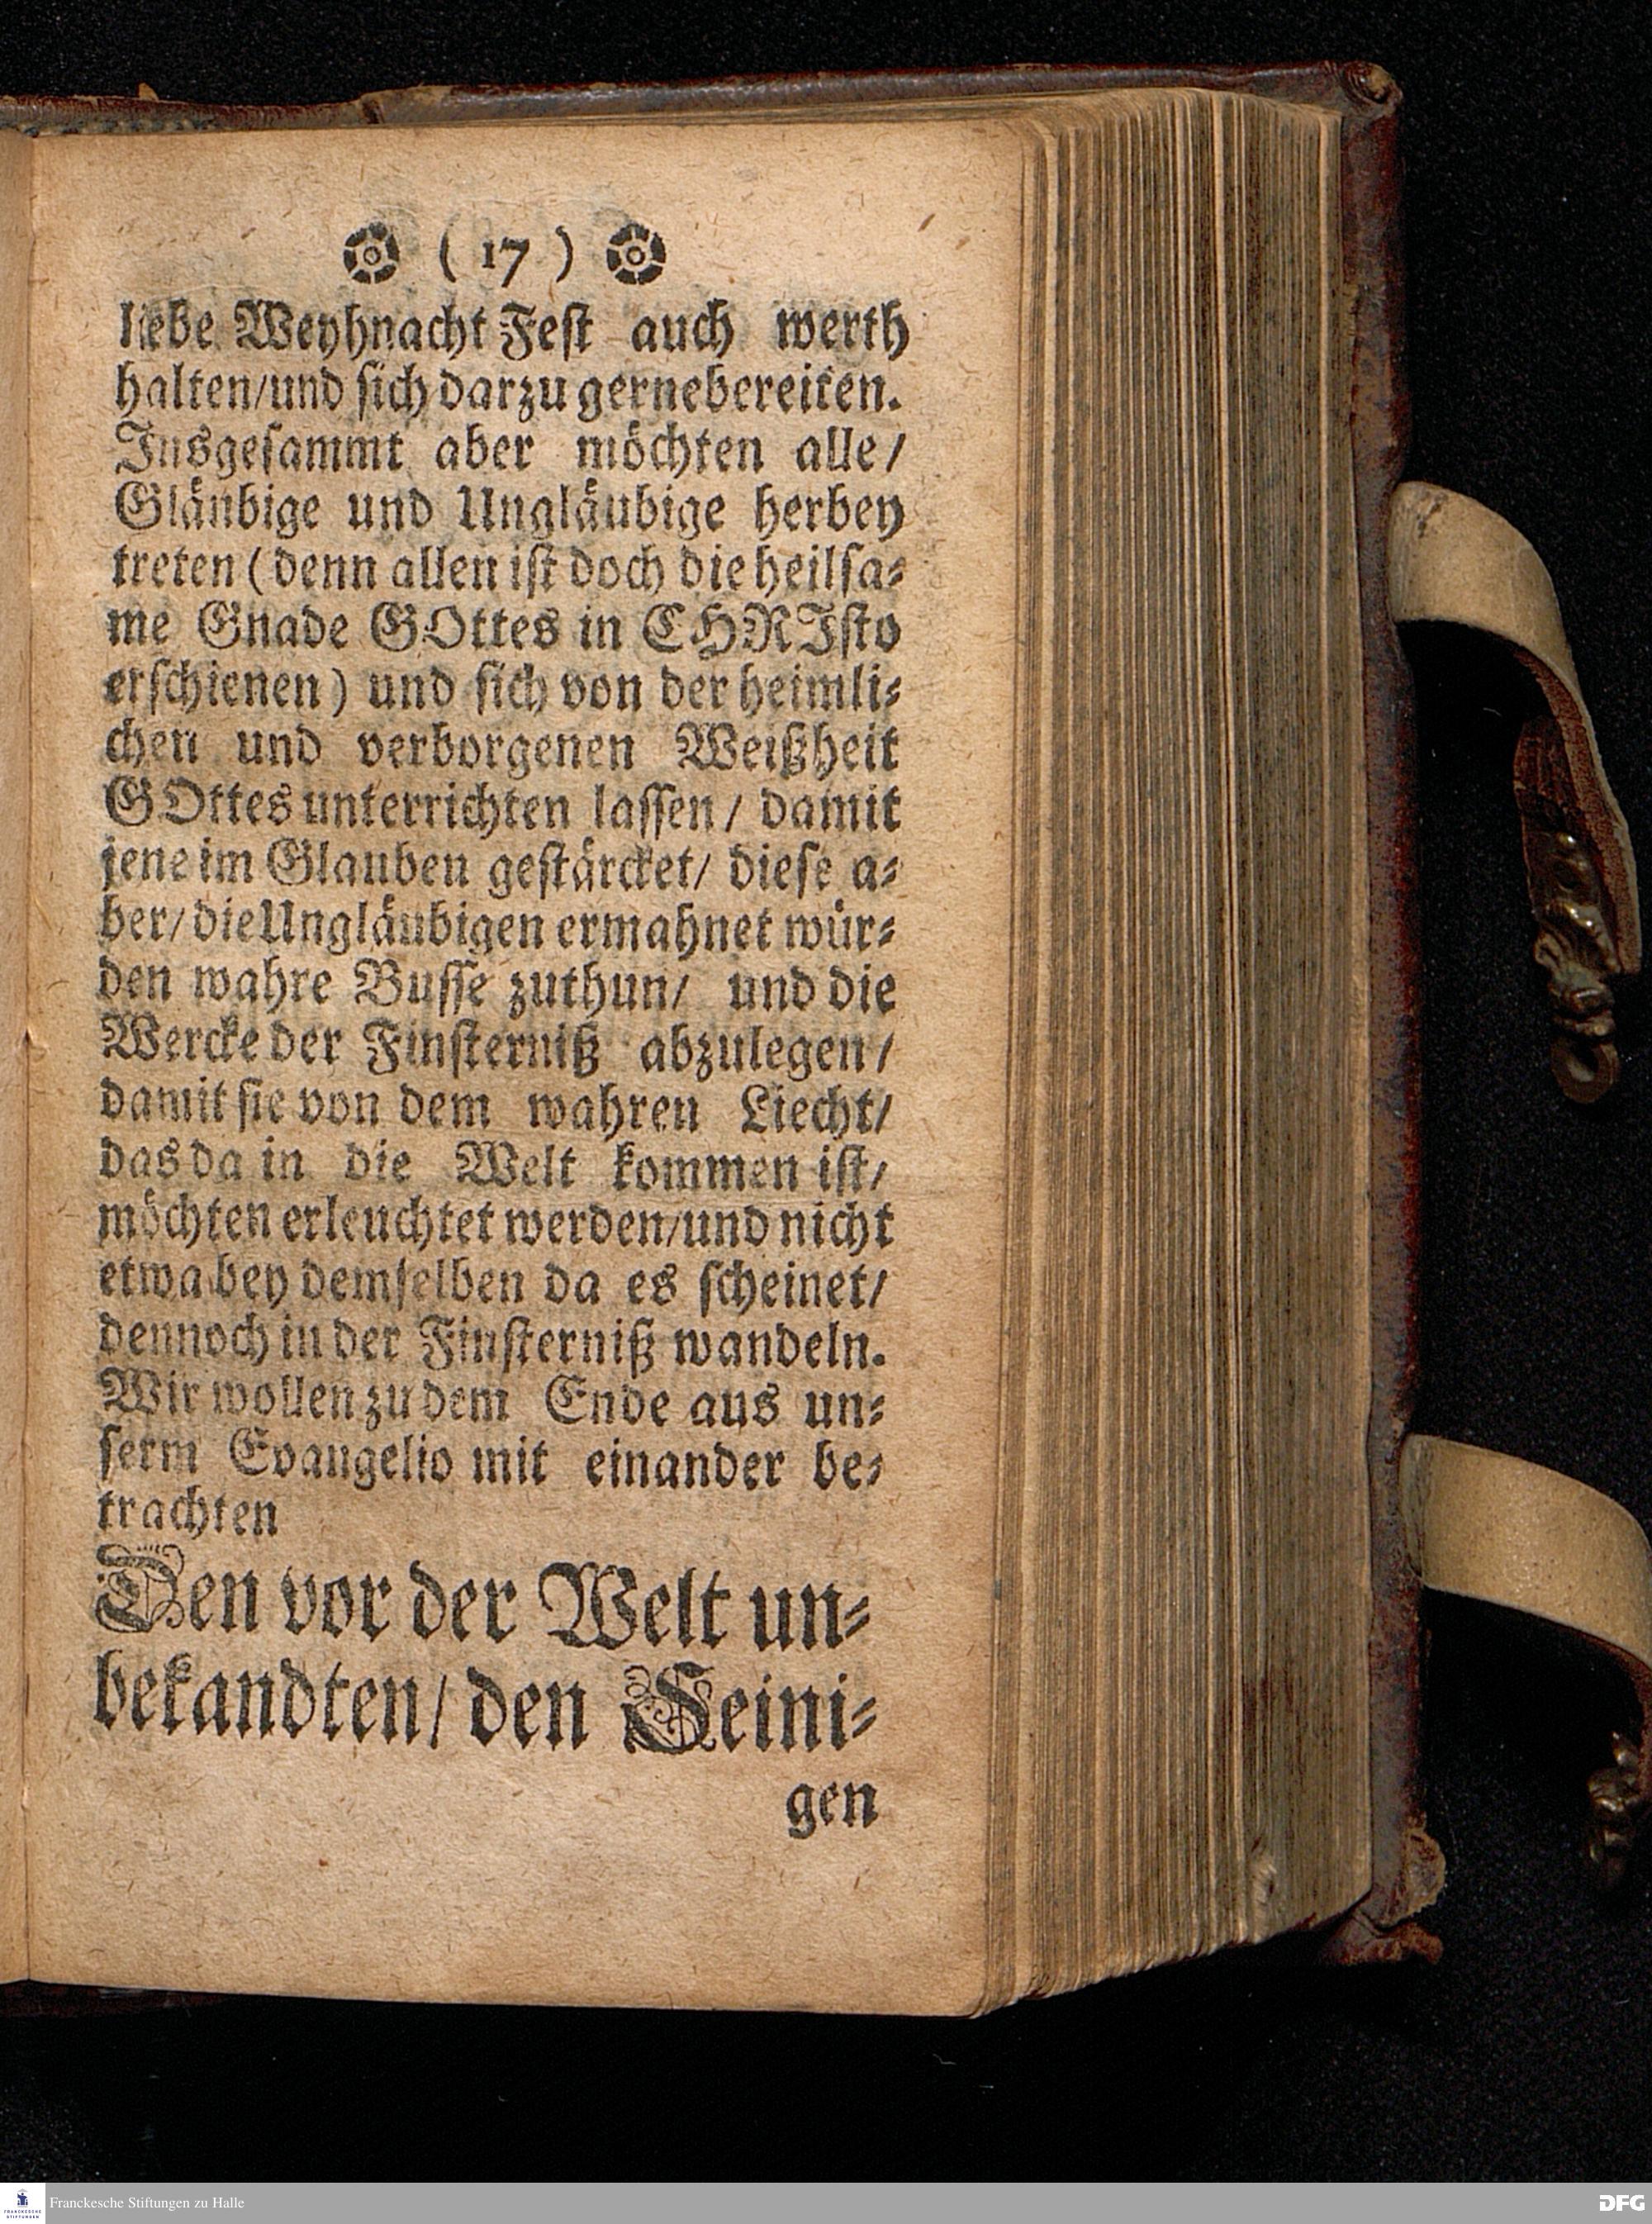 ( 17 )
liebe Weyhnacht Fest auch werth
halten/und sich darzu gernebereiten.
Insgesammt aber möchten alle/
Gläubige und Ungläubige herbey
treten (denn allen ist doch die heilsa⸗
me Gnade GOttes in CHRIsto
erschienen) und sich von der heimli⸗
chen und verborgenen Weißheit
GOttes unterrichten lassen/ damit
jene im Glauben gestärcket/ diese a⸗
ber/ die Ungläubigen ermahnet wür⸗
den wahre Busse zuthun/ und die
Wercke der Finsterniß abzulegen/
damit sie von dem wahren Liecht/
das da in die Welt kommen ist/
möchten erleuchtet werden/und nicht
etwa bey demselben da es scheinet/
dennoch in der Finsterniß wandeln.
Wir wollen zu dem Ende aus un⸗
serm Evangelio mit einander be⸗
trachten
Den vor der Welt un⸗
bekandten/ den Seini⸗
gen
FRANCKESCHE
STIFTUNGEN
Franckesche Stiftungen zu Halle
DFG